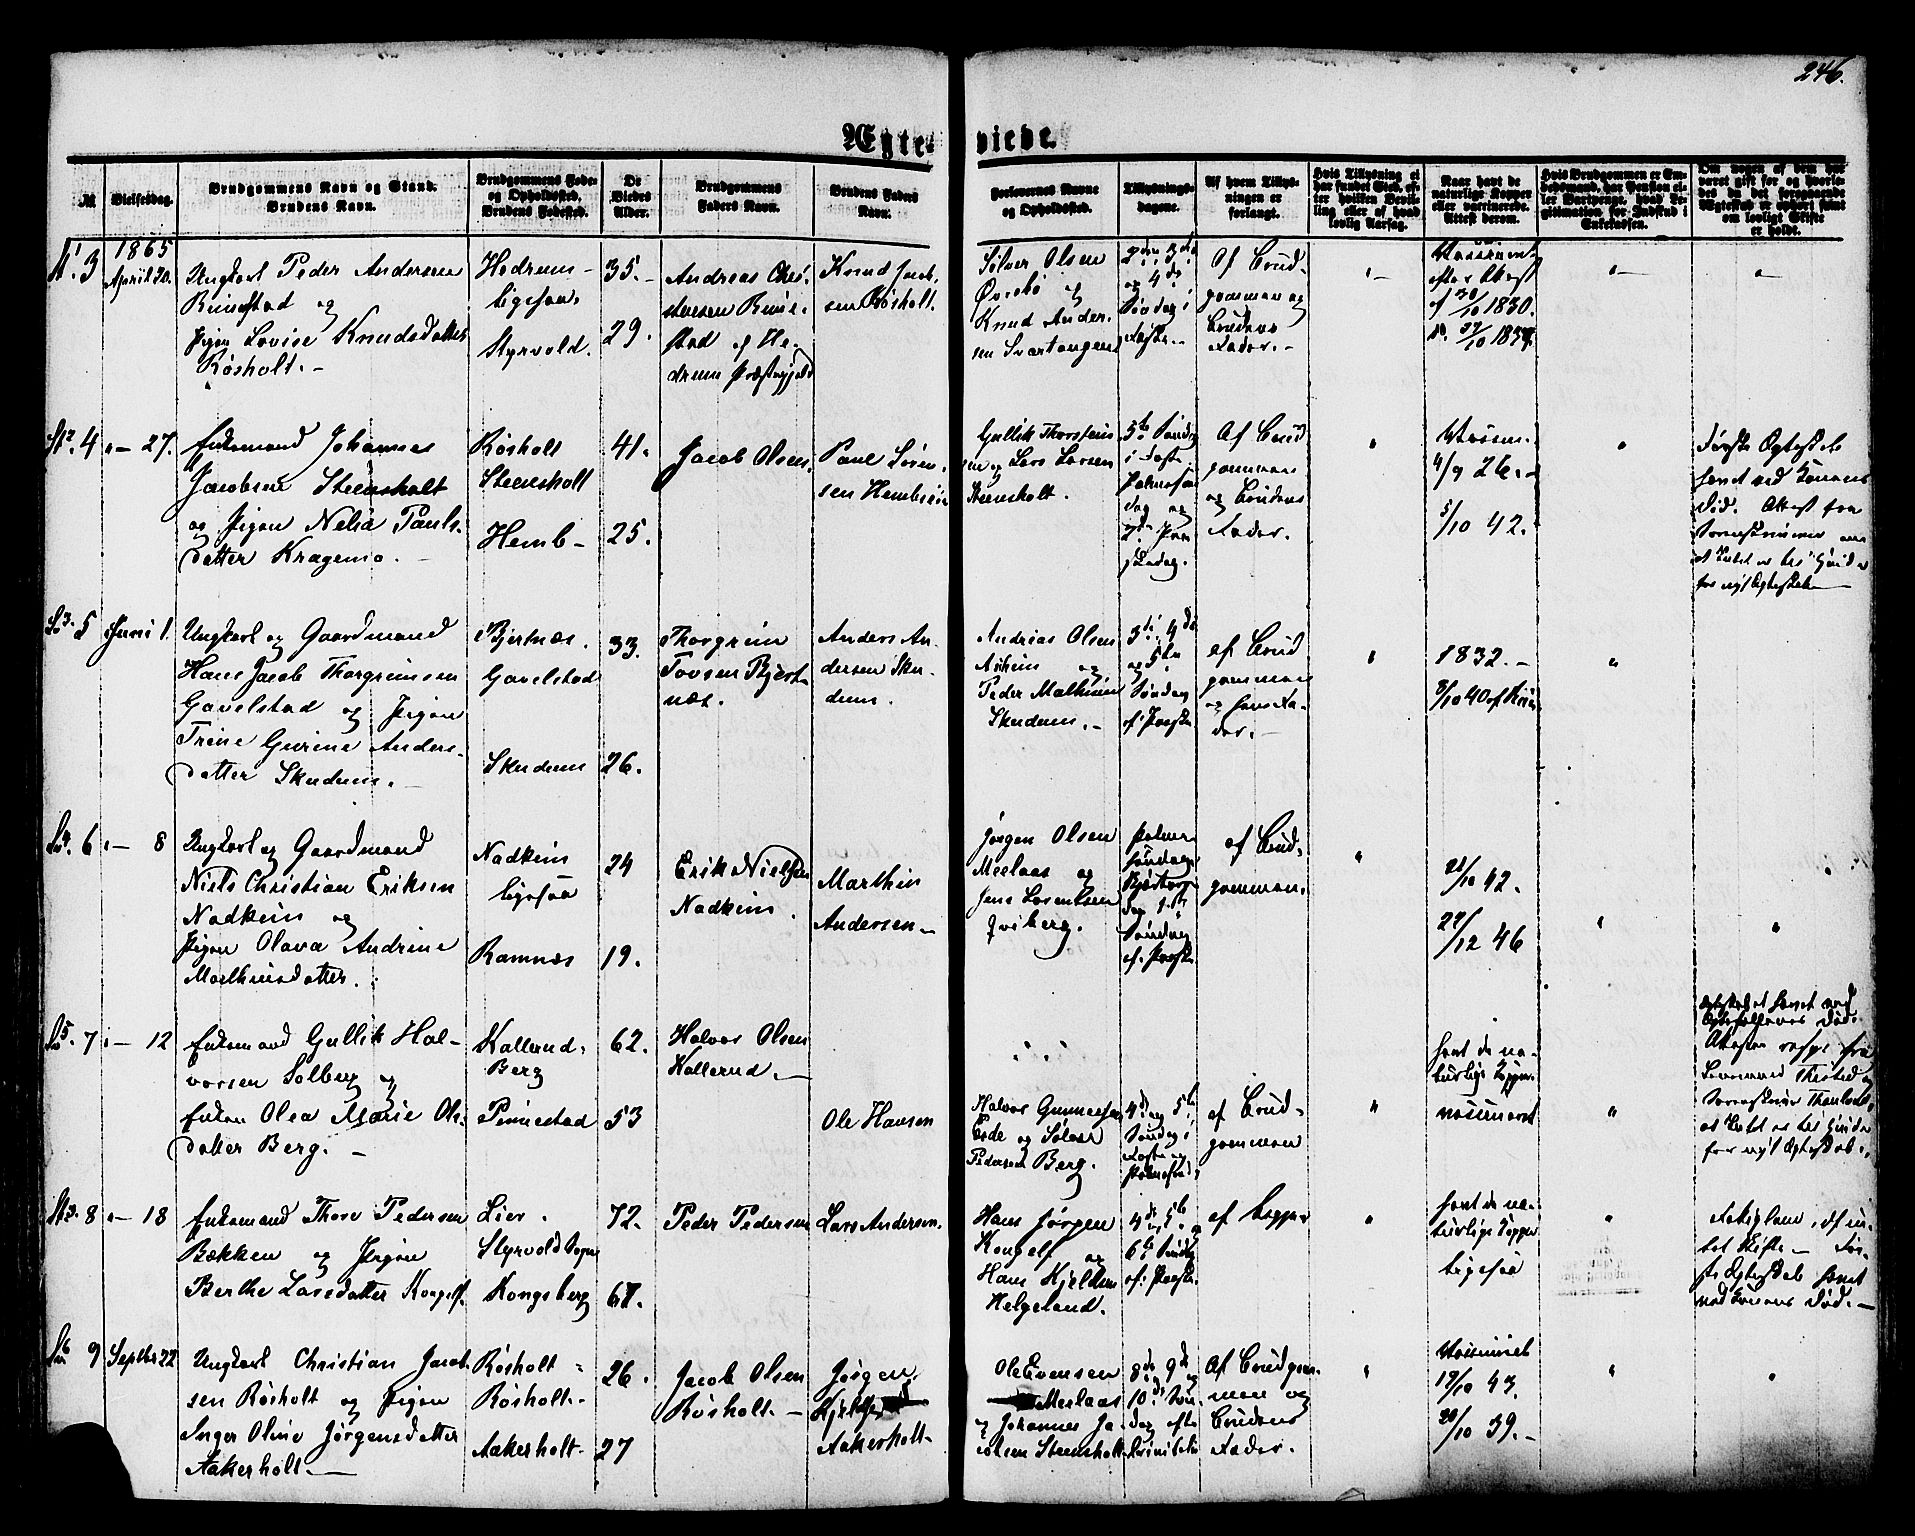 246.
Ægte- viede.
№
Vielsesdag.
Brudgommens Navn og Stand.
Brudens Navn.
Brudgommens Føde-
og Opholdssted.
Brudens Fødested.
De
Viedes
Alder.
Brudgommens
Faders Navn.
Brudens Faders
Navn.
Forlovernes Navne
og Opholdssted.
Tillysnings-
dagene.
Af hvem Tillys-
ningen er
forlangt.
Hvis Tillysning ei
har fundet Sted, ef-
ter hvilken Bevil-
ling eller af hvad
lovlig Aarsag.
Naar havt de
naturlige Kopper
eller vaccinerede.
Attest derom.
Hvis Brudgommen er Em-
bedsmand, har Pension el-
ler Vartpenge, hvad Le-
gitimation for Indskud i
Enkekassen.
Om nogen af dem har
været gift før og hvorle-
des da det foregaaende
Ægteskab er ophørt samt
om lovligt Skifte
er holdt.
3
1865
April 20.
Ungkarl Peder Andersen
Rimestad og
Pigen Lovise Knudsdatter
Røsholt. -
Hedrum -
ligesaa.
Styrvold.
35.
29.
Andreas Chri-
stensen Rime-
stad af He-
drum Præstegjeld
Knud Jacob-
sen Røsholt.
Sølver Olsen
Øvrebø og
Knud Ander-
sen Svartangen
2den 3die
og 4de
Søndag i
Faste. -
Af Brud-
gommen og
Brudens
Fader. -
30/10 1830.
4 " - 27.
Enkemand Johannes
Jacobsen Steensholt
og Pigen Nelia Pauls-
datter Kragemo. -
Røsholt
Steensholt
Hemb -
41.
25.
Jacob Olsen.
Paul Søren-
sen Hembseie
Gullik Thorstein-
sen og Lars Larsen
Steensholt.
5te Søndag
i Faste
Palmesøn-
dag og
Af Brud
gommen
og Brudens
Fader.
Vaccin.
4/9 26. -
5/10 42.
Første Ægteskab
hævet ved Konens
Død. Attest fra
Sorenskriveren om
at Intet er til Hinder
for nyt Ægteskab
5 Juni 1.
Ungkarl og Gaardmand
Hans Jacob Thorgrimsen
Gavelstad og Pigen
Trine Gurine Anders-
datter Skudum. -
Bjertnæs.
Gavelstad
Skudum
33.
26.
Thorgrim
Tovsen Bjert-
næs.
Anders An-
dersen Sku-
dum.
Andreas Olsen
Askeim og
Peder Mathisen
Skudum. -
3die 4de
og 5te
Søndag
ef. Paaske
af Brud
gommen
og hans Fa-
der. -
1832. -
8/10 40
6 " - 8
Ungkarl og Gaardmand
Niels Christian Eriksen
Nadheim og
Pigen Olava Andrine
Mathisdatter.
Nadheim
ligesaa
Ramnæs
24
19.
Erik Nielsen
Nadheim.
Mathis
Andersen -
Jørgen Olsen
Meelaas og
Jens Lorentsen
Qviberg.
Søndag
ef. Paaske
af Brud-
gommen.
21/10 42.
27/12 46
7 " - 12
Enkemand Gullik Hal-
vorsen Solberg og
Enken Olea Marie Ols-
datter Berg. -
Kallerud -
Berg
Pennestad
62.
53
Halvor Olsen
Kallerud. -
Ole Hansen
Halvor Gunnersen
Eide og Sølver
Pedersen Berg.
4de og 5te
Søndag i
Faste og
Palmesøndag
af Brud-
gommen
havt de na-
turlige Kopper
vaccineret
Ægteskabet hævet ved
Ægtefællernes Død.
Attester resp. fra
Lensmand Thisted og
Sorenskriver
at Intet er til Hinder
for nyt Ægteskab.
8 " - 18
Enkemand Thore Pedersen
Bækken og Pigen
Berthe Larsdatter Kongelf.
Lier.
Styrvold Sogn
Kongsberg
72.
61.
Peder Pedersen
Lars Andersen.
Hans Jørgen
Kongelf og
Hans Kjeldsen
Helgeland.
4de 5te og
6te Søndag
ef. Paaske.
af begge
havt de na-
turlige Kopper
ligesaa
Fattiglem, def in-
tet Skifte. - Før-
ste Ægteskab hævet
ved Konens Død. -
9 Septbr 22
Ungkarl Christian Jacob-
sen Røsholt og Pigen
Inger Oline Jørgensdatter
Aakerholt. -
Røsholt -
Røsholt. -
Aakerholt -
26.
27
Jacob Olsen
Røsholt. -
Jørgen
Aakerholt -
Ole Evensen
Meelaas
og Johannes Ja-
cobsen Steensholt
8de 9de og
10de Søn-
dag efter
Trinitatis
Af Brudgom-
men og
Brudens
Fader.
Vaccineret
19/10 43.
20/10 39. -